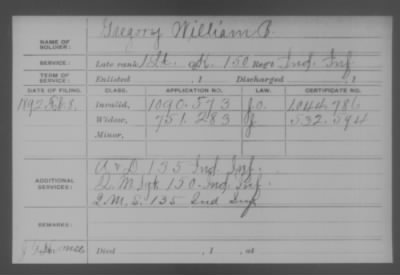 NAME OF SOLDIER: Gregory William P.
SERVICE: Late rank, 1 Lt. Co. K. 150 Reg't Ind. Inf.
TERM OF SERVICE: Enlisted , 1 Discharged , 1
DATE OF FILING. CLASS. APPLICATION NO. LAW. CERTIFICATE NO.
1892 Feb. 8. Invalid, 1090.573 J.O. 1044.786
Widow, 751.283 J 532.594
Minor,
ADDITIONAL SERVICES: A & D. 135 Ind. Inf.
Q. M. Sgt. 150 Ind. Inf.
Q. M. S. 135 Ind Inf
REMARKS:
Died , 1 , at